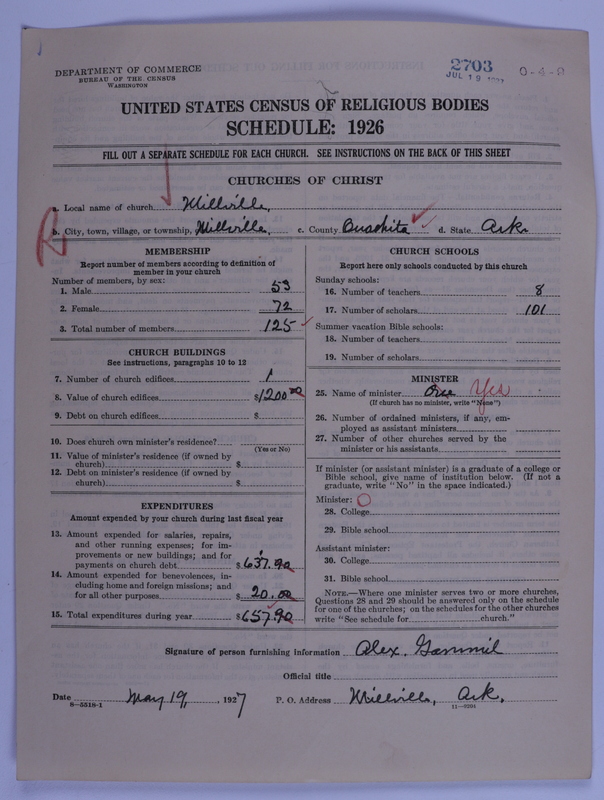 DEPARTMENT OF COMMERCE
BUREAU OF THE CENSUS
WASHINGTON
2703
JUL 19 1927
0-4-8
UNITED STATES CENSUS OF RELIGIOUS BODIES
SCHEDULE: 1926
FILL OUT A SEPARATE SCHEDULE FOR EACH CHURCH. SEE INSTRUCTIONS ON THE BACK OF THIS SHEET
CHURCHES OF CHRIST
a. Local name of church Millville,
b. City, town, village, or township, Millville, c. County Ouachita d. State Ark
MEMBERSHIP
Report number of members according to definition of
member in your church
Number of members, by sex:
1. Male 53
2. Female 72
3. Total number of members 125
CHURCH BUILDINGS
See instructions, paragraphs 10 to 12
7. Number of church edifices 1
8. Value of church edifices $1200.00
9. Debt on church edifices $
10. Does church own minister's residence?
(Yes or No)
11. Value of minister's residence (if owned by
church) $
12. Debt on minister's residence (if owned by
church) $
EXPENDITURES
Amount expended by your church during last fiscal year
13. Amount expended for salaries, repairs,
and other running expenses; for im-
provements or new buildings; and for
payments on church debt $637.90
14. Amount expended for benevolences, in-
cluding home and foreign missions; and
for all other purposes $20.00
15. Total expenditures during year $657.90
CHURCH SCHOOLS
Report here only schools conducted by this church
Sunday schools:
16. Number of teachers 8
17. Number of scholars 101
Summer vacation Bible schools:
18. Number of teachers
19. Number of scholars
MINISTER
25. Name of minister One Yes
(If church has no minister, write "None")
26. Number of ordained ministers, if any, em-
ployed as assistant ministers
27. Number of other churches served by the
minister or his assistants
If minister (or assistant minister) is a graduate of a college or
Bible school, give name of institution below. (If not a
graduate, write "No" in the space indicated.)
Minister:
28. College
29. Bible school
Assistant minister:
30. College
31. Bible school
NOTE.—Where one minister serves two or more churches,
Questions 28 and 29 should be answered only on the schedule
for one of the churches; on the schedules for the other churches
write "See schedule for church."
Signature of person furnishing information Alex. Gammil
Official title
Date May 19, 1927 P. O. Address Millville, Ark.
8—5518-1
11—9394